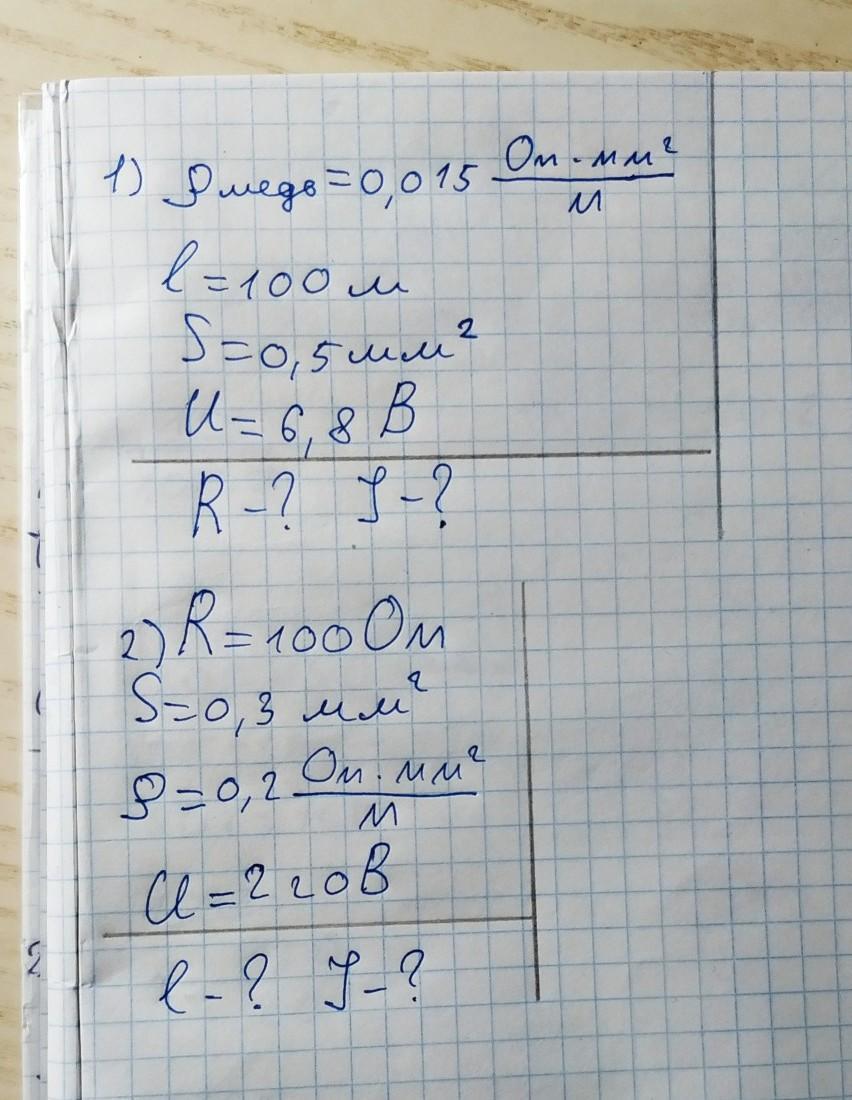 1) ρ медь = 0,015 Ом · мм² / м
l = 100 м
S = 0,5 мм²
U = 6,8 В
R - ? I - ?
2) R = 100 Ом
S = 0,3 мм²
ρ = 0,2 Ом · мм² / м
U = 220 В
l - ? I - ?